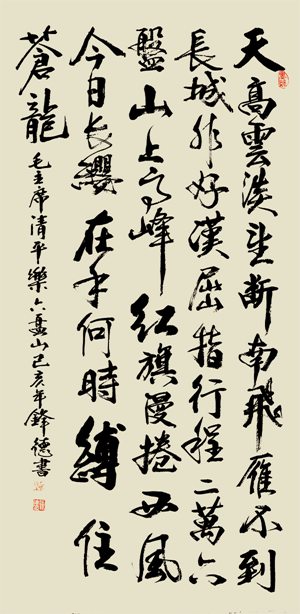 天高雲淡望斷南飛雁不到
長城非好漢屈指行程二萬六
盤山上高峰紅旗漫捲西風
今日长纓在手何時縛住
蒼龍
毛主席清平樂六盤山己亥年鋒德書